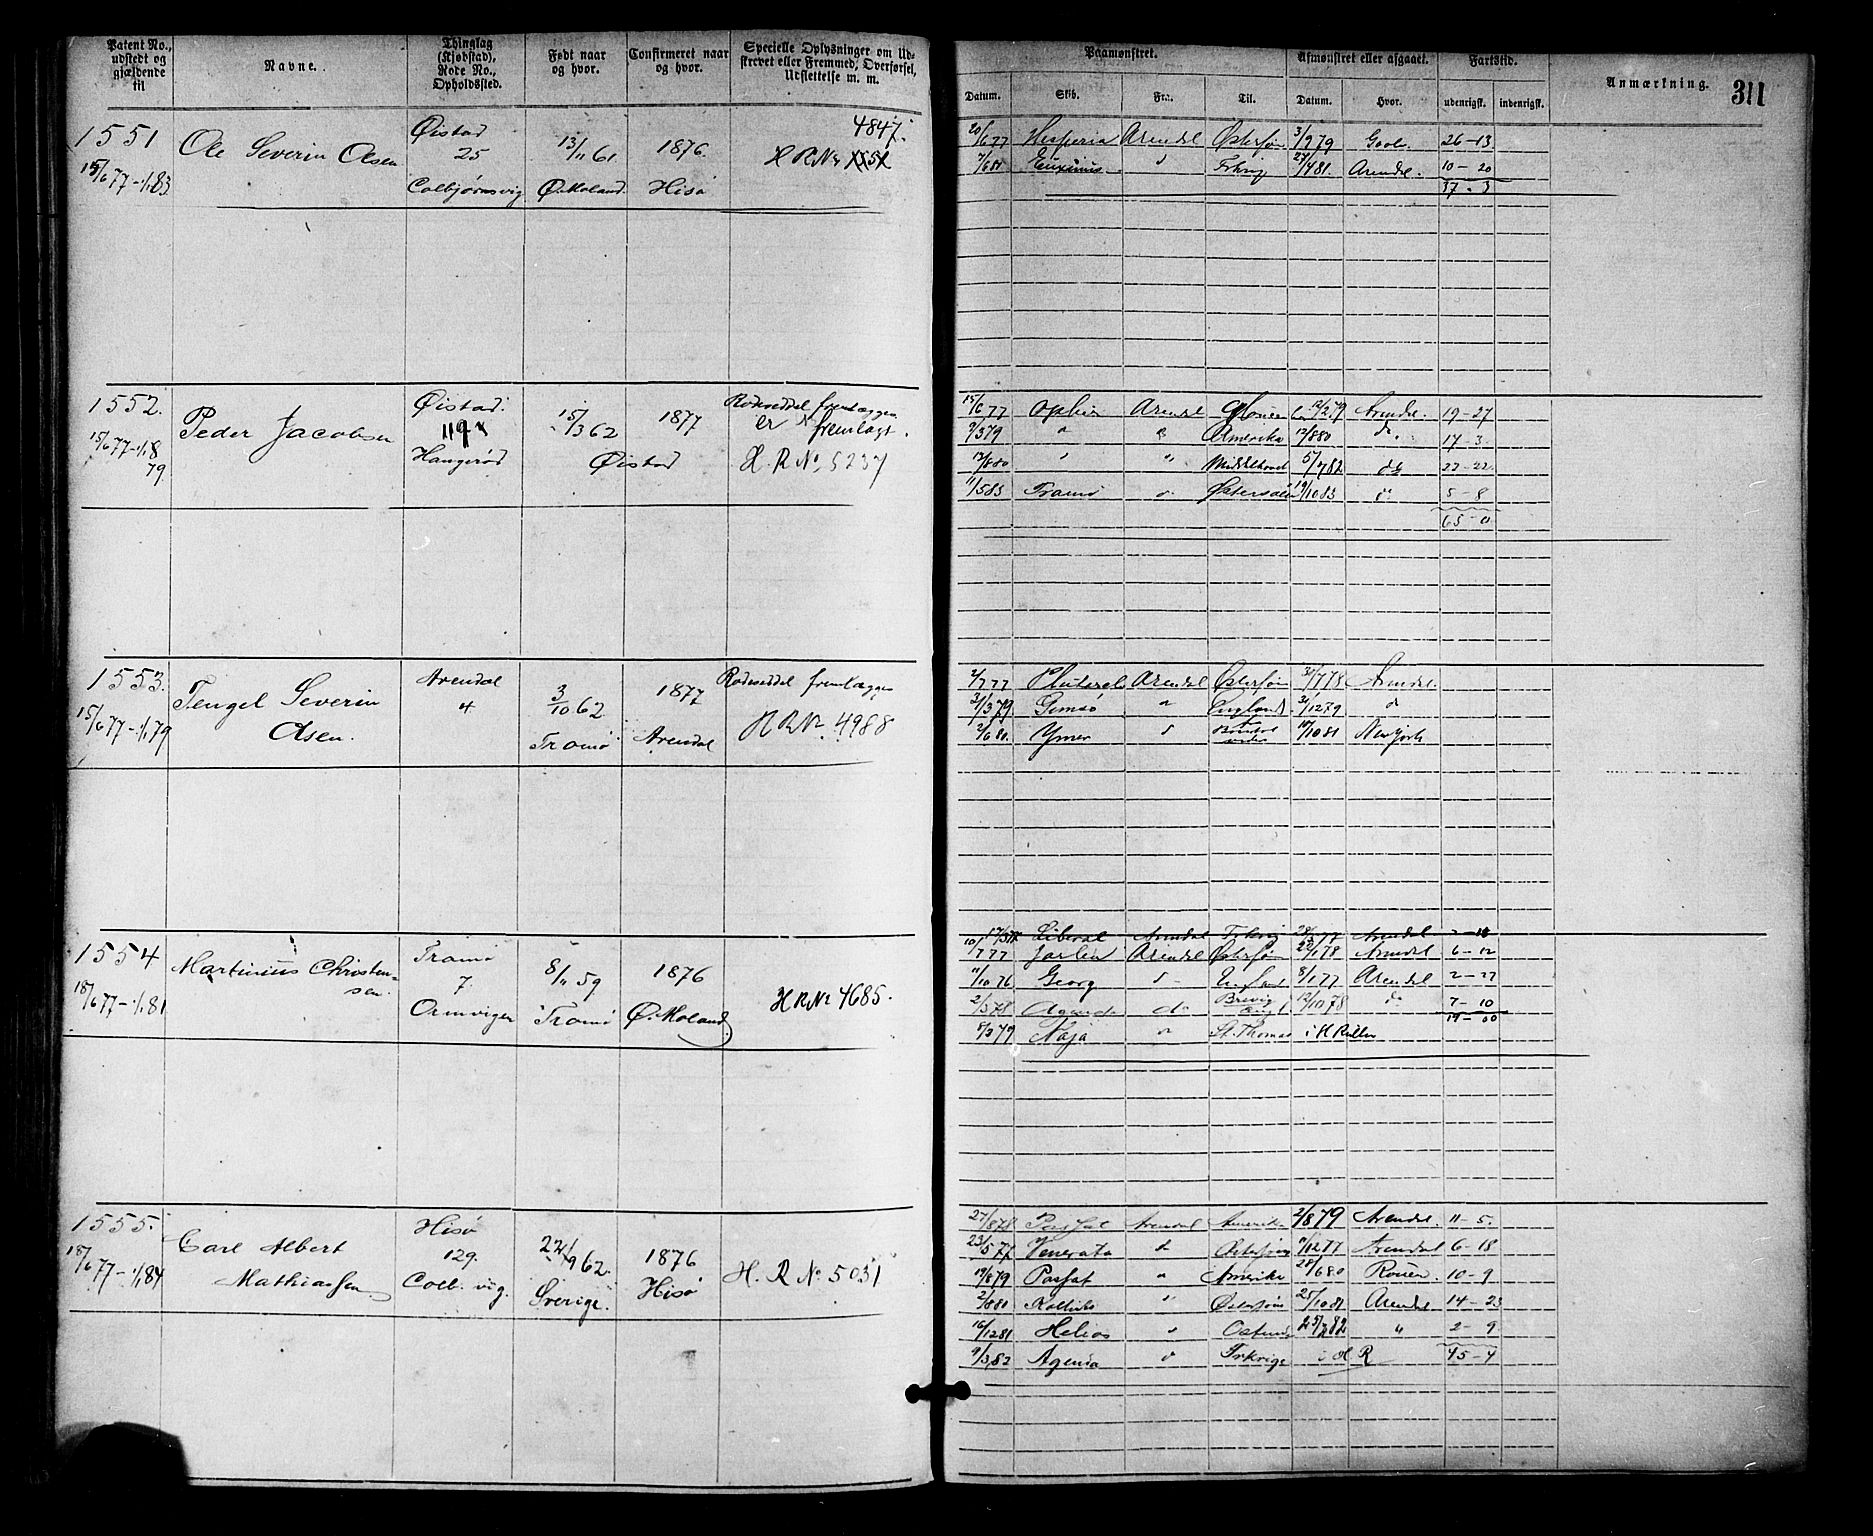 Patent No., udstedt og gjældende til
Navne.
Thinglag (Kjøbstad), Rode No., Opholdssted.
Født naar og hvor.
Confirmeret naar og hvor.
Specielle Oplysninger om Udskrevet eller Fremmed, Overførsel, Udslettelse m. m.
Paamønstret.
Afmønstret eller afgaaet.
Fartstid.
Anmærkning.
311
Datum.
Skib.
Fra.
Til.
Datum.
Hvor.
udenrigsk.
indenrigsk.
1551
15/6 77-1/1 83
Ole Severin Olsen
Øistad
25
Colbjørnsvig
13/11 61
Ø. Moland.
1876.
Hisø
4847.
H R No
20/6 77 Hesperia Arendal Østersøn 3/9 79 Goole. 26-13
7/6 81 Euxinus 27/4 81. Arendal. 10-20
37-3
1552.
15/6 77-1/1 8
79.
Peder Jacobsen
Øistad.
119
Haugerød
15/3 62
Øistad
1877
Rodeseddel fremlægges
er fremlagt.
H. R No. 5237
15/6 77 Ophir Arendal 12/2 79 Arendal 19-27
9/3 79 " " Amerika 12/8 80 do. 17-3
17/8 80 " " Middelhavet 5/7 82 do 22-22
11/5 83 Tromø Østersøen 19/10 83 do 5-8
65-0
1553.
15/6 77-1/1 79
Tengel Severin
Olsen.
Arendal
4
3/10 62
Tromø
1877
Arendal
Rodeseddel fremlægges
H R No. 4988
2/7 77 Plutarch Arendal Østersøn 30/7 78 Arendal.
31/3 79 Gimsø " England 2/12 79 do
2/6 80. Ymer 10/10 81 New York
1554
18/6 77-1/1 81
Martinius Christen-
sen.
Tromø
7.
Ormvigen
8/11 59
Tromø
1876
Ø. Moland.
H R No 4685.
Liberal Arendal Arendal
10/7 77 Arendal Østersøn 22/1 78 Arendal 6-12
11/10 76 Georg 8/1 77 Arendal 2-27
2/5 78 Agenda do Brevig 12/10 78 do 7-10
19-00
5/3 79 Naja " St. Thomas i H Rullen
1555.
18/6 77-1/1 84
Carl Albert
Mathiassen
Hisø
129.
Colb. vig.
22/9 62.
Sverige.
1876
Hisø
H. R No. 5031
27/8 78 Passat Arendal Amerika 2/8 79 Arendal. 11-5.
23/5 77 Venerata do Østersøen 11/12 77 Arendal 6-18
19/8 79 Passat " Amerika 28/6 80 Rouen. 10-9
2/8 80 " Østersøn 25/10 81 Arendal 14-23
16/12 81 Helios " Ostende 25/2 82 " 2-9
9/3 82 Agenda i H R 45-4